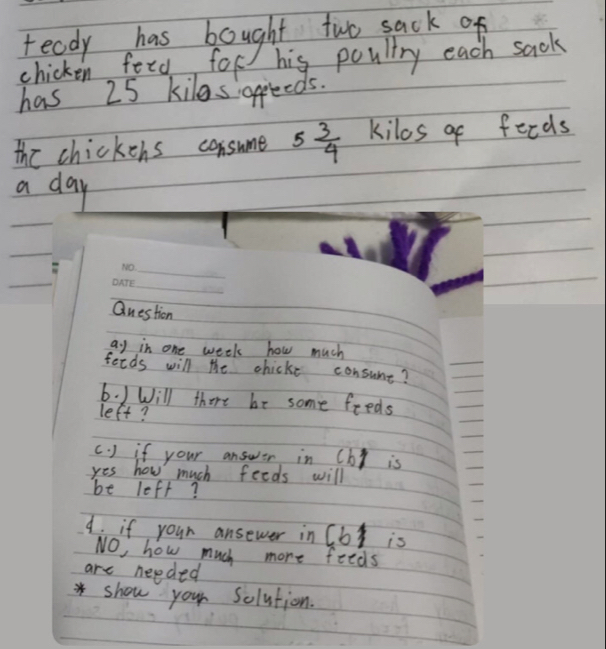 teody has bought two sack of
chicken feed for his poultry each sack
has 25 kilos of feeds.
the chickens consume 5 3/4 kilos of feeds
a day
NO.
DATE
Question
a.) in one week how much
feeds will the chicke consume?
b.) Will there be some feeds
left?
c.) if your answer in (b) is
yes how much feeds will
be left?
4. if your ansewer in (b) is
NO, how much more feeds
are needed
* show your solution.